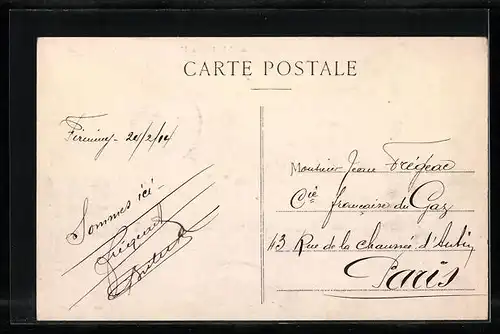 CARTE POSTALE
Firminy - 20/2/14
Sommes ici -
Monsieur Jean Frégeac
Cie française du Gaz
43 Rue de la Chaussée d'Antin
Paris